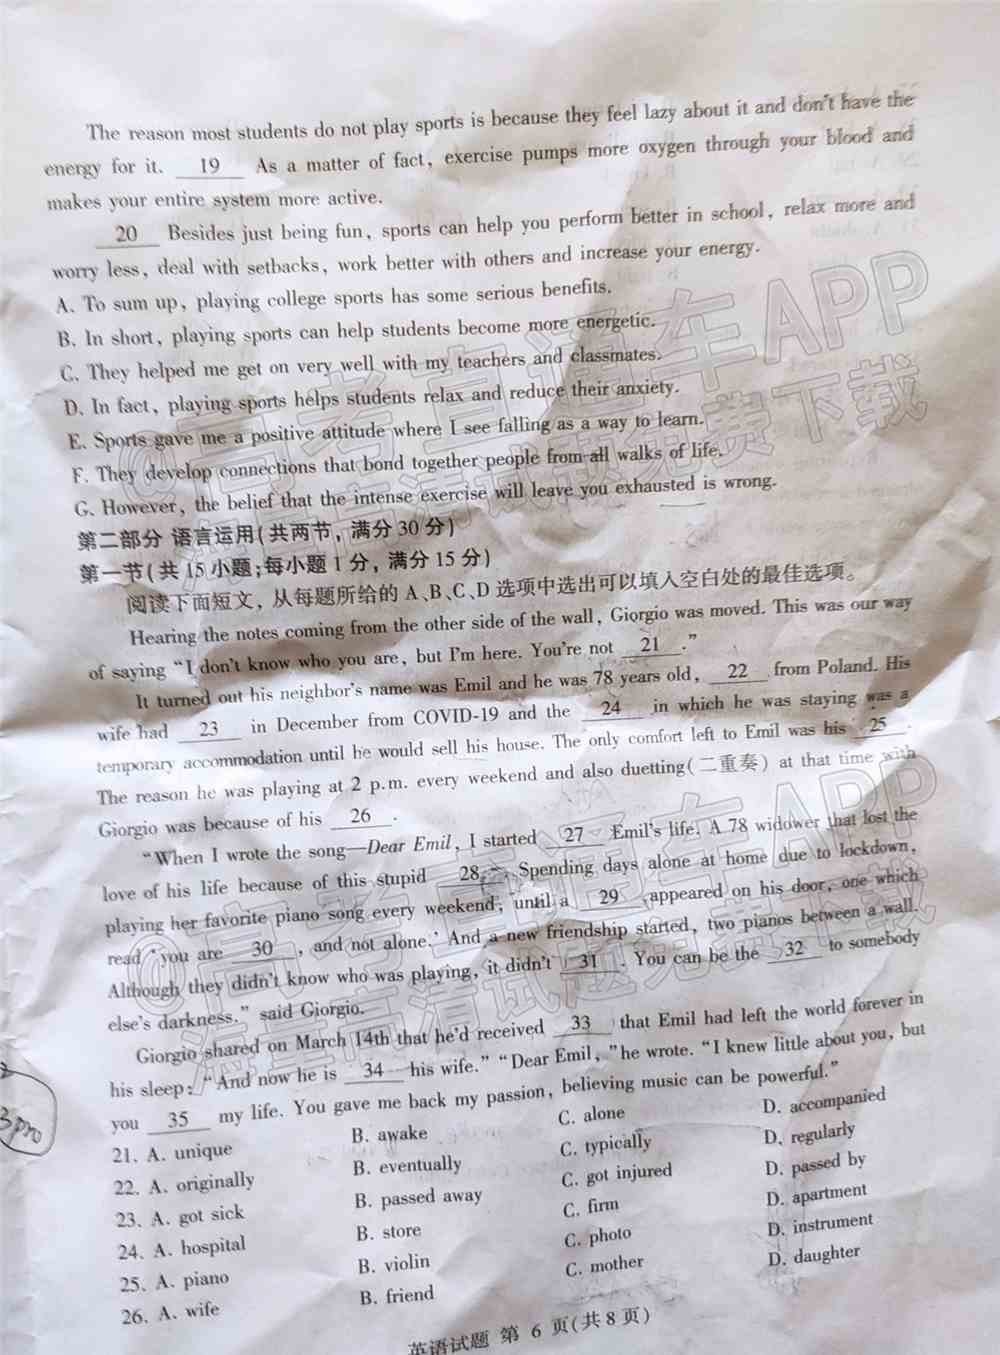 The reason most students do not play sports is because they feel lazy about it and don't have the
energy for it. 19 As a matter of fact, exercise pumps more oxygen through your blood and
makes your entire system more active.
20 Besides just being fun, sports can help you perform better in school, relax more and
worry less, deal with setbacks, work better with others and increase your energy.
A. To sum up, playing college sports has some serious benefits.
B. In short, playing sports can help students become more energetic.
C. They helped me get on very well with my teachers and classmates.
D. In fact, playing sports helps students relax and reduce their anxiety.
E. Sports gave me a positive attitude where I see falling as a way to learn.
F. They develop connections that bond together people from all walks of life.
G. However, the belief that the intense exercise will leave you exhausted is wrong.
第二部分 语言运用(共两节,满分30分)
第一节(共15小题;每小题1分,满分15分)
阅读下面短文,从每题所给的A、B、C、D选项中选出可以填入空白处的最佳选项。
Hearing the notes coming from the other side of the wall, Giorgio was moved. This was our way
of saying “I don't know who you are, but I'm here. You're not 21 .”
It turned out his neighbor's name was Emil and he was 78 years old, 22 from Poland. His
wife had 23 in December from COVID-19 and the 24 in which he was staying was a
temporary accommodation until he would sell his house. The only comfort left to Emil was his 25 .
The reason he was playing at 2 p.m. every weekend and also duetting(二重奏) at that time with
Giorgio was because of his 26 .
“When I wrote the song—Dear Emil, I started 27 Emil's life. A 78 widower that lost the
love of his life because of this stupid 28 . Spending days alone at home due to lockdown,
playing her favorite piano song every weekend, until a 29 appeared on his door, one which
read ‘you are 30 , and not alone.’ And a new friendship started, two pianos between a wall.
Although they didn't know who was playing, it didn't 31 . You can be the 32 to somebody
else's darkness.” said Giorgio.
Giorgio shared on March 14th that he'd received 33 that Emil had left the world forever in
his sleep: “And now he is 34 his wife.” “Dear Emil,” he wrote. “I knew little about you, but
you 35 my life. You gave me back my passion, believing music can be powerful.”
21. A. unique B. awake C. alone D. accompanied
22. A. originally B. eventually C. typically D. regularly
23. A. got sick B. passed away C. got injured D. passed by
24. A. hospital B. store C. firm D. apartment
25. A. piano B. violin C. photo D. instrument
26. A. wife B. friend C. mother D. daughter
英语试题 第6页(共8页)
@高考直通车APP
海量高清试题免费下载
@高考直通车APP
海量高清试题免费下载